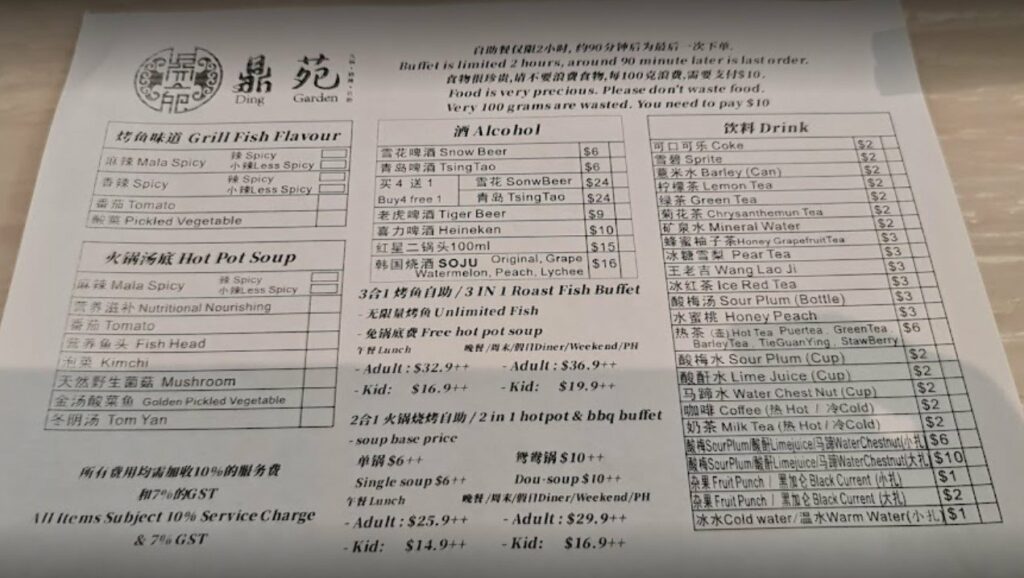 鼎 苑
Ding Garden
自助餐仅限2小时, 约90分钟后为最后一次下单.
Buffet is limited 2 hours, around 90 minute later is last order.
食物很珍贵,请不要浪费食物,每100克浪费,需要支付$10.
Food is very precious. Please don't waste food.
Very 100 grams are wasted. You need to pay $10
烤鱼味道 Grill Fish Flavour
麻辣 Mala Spicy 辣 Spicy
小辣Less Spicy
香辣 Spicy 辣 Spicy
小辣Less Spicy
番茄 Tomato
酸菜 Pickled Vegetable
火锅汤底 Hot Pot Soup
麻辣 Mala Spicy 辣 Spicy
小辣Less Spicy
营养滋补 Nutritional Nourishing
番茄 Tomato
营养鱼头 Fish Head
泡菜 Kimchi
天然野生菌菇 Mushroom
金汤酸菜鱼 Golden Pickled Vegetable
冬阴汤 Tom Yan
所有费用均需加收10%的服务费
和7%的GST
All Items Subject 10% Service Charge
& 7% GST
酒 Alcohol
雪花啤酒 Snow Beer $6
青岛啤酒 TsingTao $6
买 4 送 1 雪花 SonwBeer $24
Buy4 free 1 青岛 TsingTao $24
老虎啤酒 Tiger Beer $9
喜力啤酒 Heineken $10
红星二锅头100ml $15
韩国烧酒 SOJU Original, Grape $16
Watermelon, Peach, Lychee
3合1 烤鱼自助 / 3 IN 1 Roast Fish Buffet
- 无限量烤鱼 Unlimited Fish
- 免锅底费 Free hot pot soup
午餐 Lunch 晚餐/周末/假日Diner/Weekend/PH
- Adult : $32.9++ - Adult : $36.9++
- Kid: $16.9++ - Kid: $19.9++
2合1 火锅烧烤自助 / 2 in 1 hotpot & bbq buffet
- soup base price
单锅 $6++ 鸳鸯锅 $10++
Single soup $6++ Dou-soup $10++
午餐 Lunch 晚餐/周末/假日Diner/Weekend/PH
- Adult : $25.9++ - Adult : $29.9++
- Kid: $14.9++ - Kid: $16.9++
饮料 Drink
可口可乐 Coke $2
雪碧 Sprite $2
薏米水 Barley (Can) $2
柠檬茶 Lemon Tea $2
绿茶 Green Tea $2
菊花茶 Chrysanthemun Tea $2
矿泉水 Mineral Water $2
蜂蜜柚子茶Honey GrapefruitTea $3
冰糖雪梨 Pear Tea $3
王老吉 Wang Lao Ji $3
冰红茶 Ice Red Tea $3
酸梅汤 Sour Plum (Bottle) $3
水蜜桃 Honey Peach $3
热茶 (壶) Hot Tea Puertea , GreenTea, $6
BarleyTea , TieGuanYing , StawBerry
酸梅水 Sour Plum (Cup) $2
酸酐水 Lime Juice (Cup) $2
马蹄水 Water Chest Nut (Cup) $2
咖啡 Coffee (热 Hot / 冷Cold) $2
奶茶 Milk Tea (热 Hot / 冷Cold) $2
酸梅SourPlum/酸酐Limejuice/马蹄WaterChestnut(小扎) $6
酸梅SourPlum/酸酐Limejuice/马蹄WaterChestnut(大扎) $10
杂果 Fruit Punch / 黑加仑 Black Current (小扎) $1
杂果 Fruit Punch / 黑加仑 Black Current (大扎) $2
冰水Cold water/温水Warm Water(小扎) $1